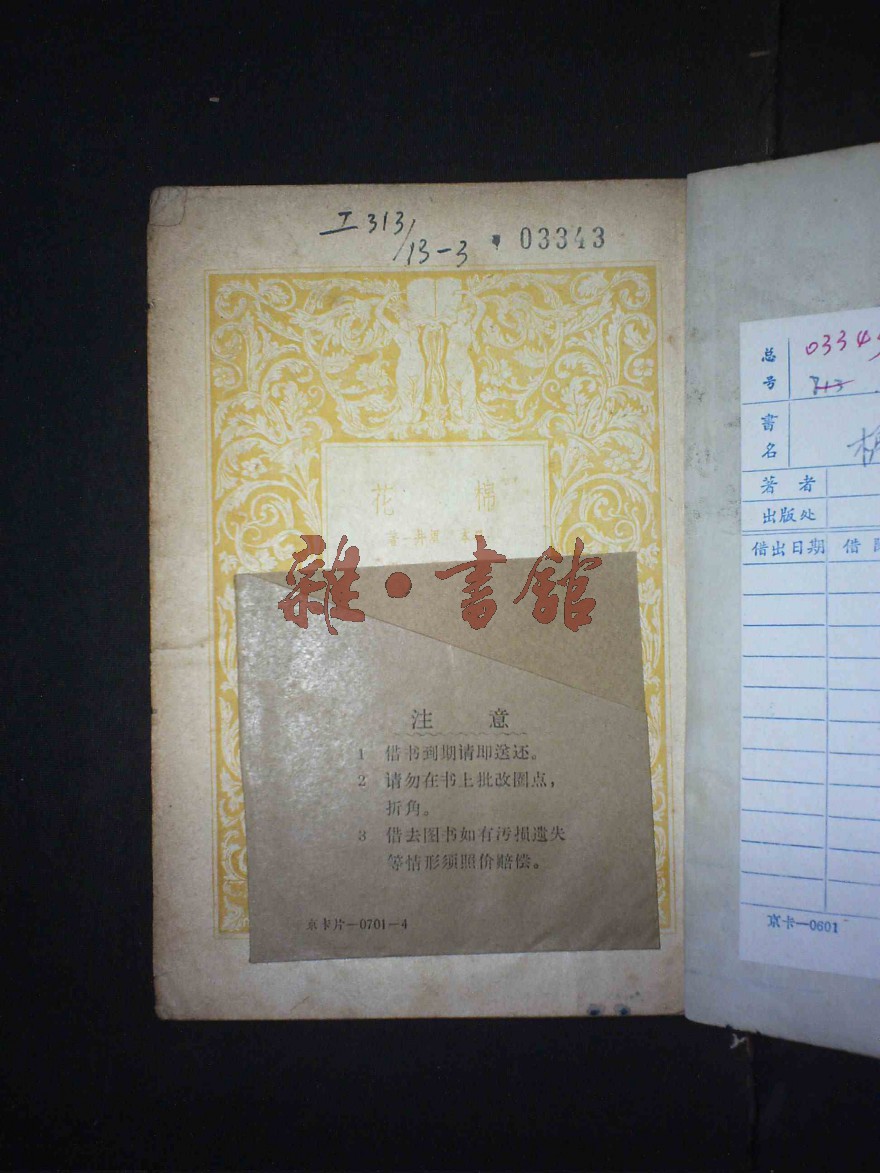 I313/13-3
03343
花 棉
雜·書館
注 意
1 借书到期请即送还。
2 请勿在书上批改圈点,
折角。
3 借去图书如有污损遗失
等情形须照价赔偿。
京卡片—0701—4
总号
书名
著者
出版处
借出日期 借
京卡—0601